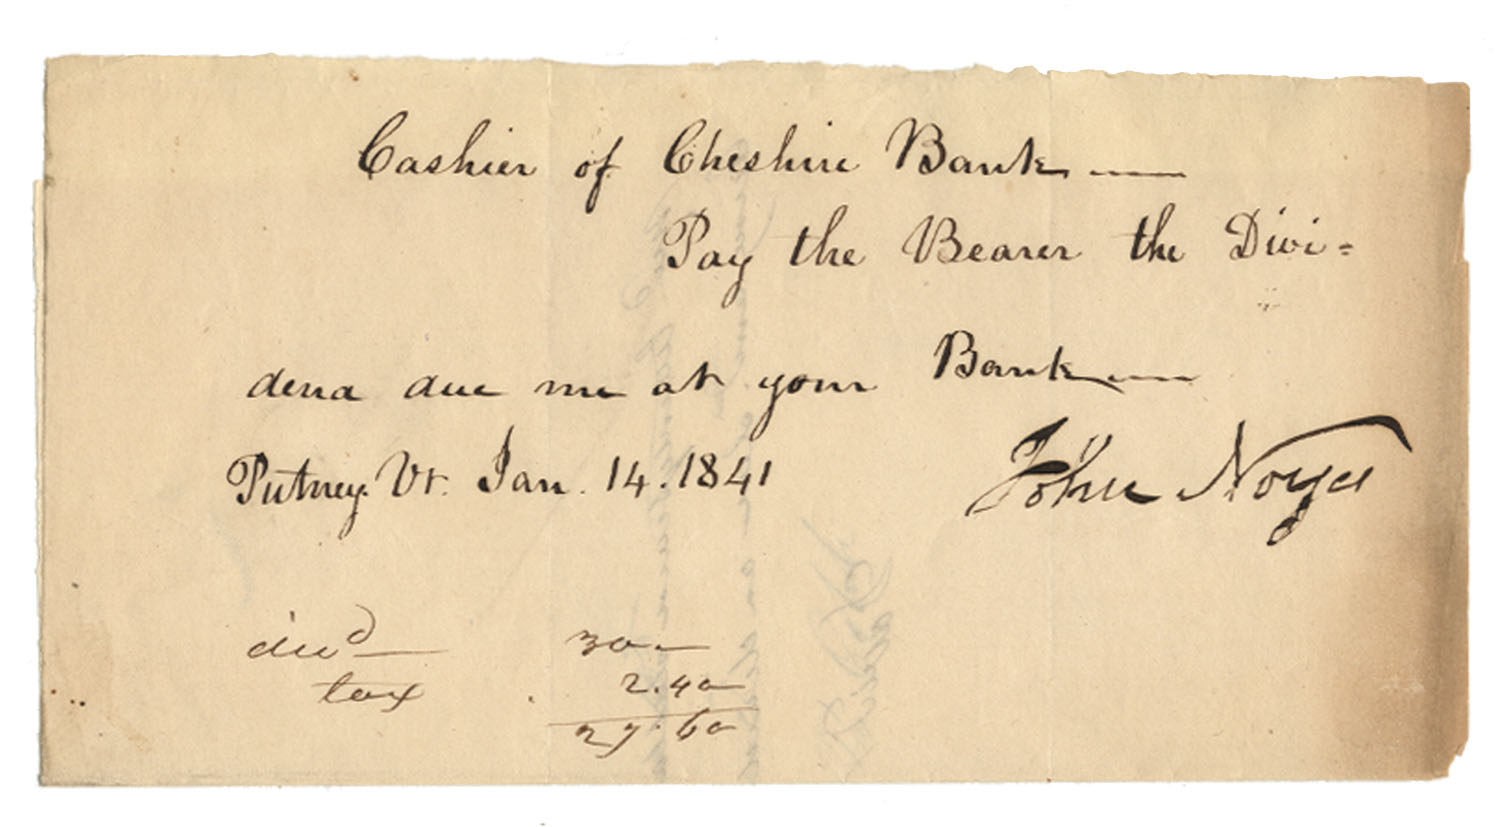 Cashier of Cheshire Bank —
Pay the Bearer the Divi=
dend due me at your Bank —
Putney. Vt. Jan. 14. 1841 John Noyes
divd — 30 —
tax 2.40
27.60